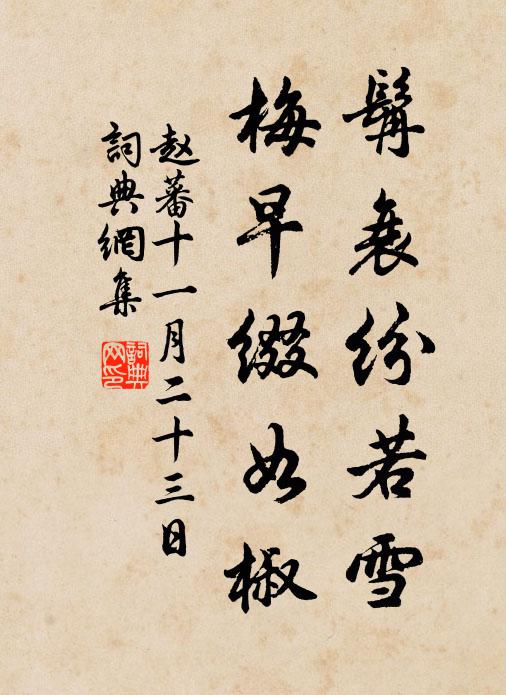 鬓衰纷若雪
梅早缀如椒
赵蕃十一月二十三日
詞典網集
詞典网印